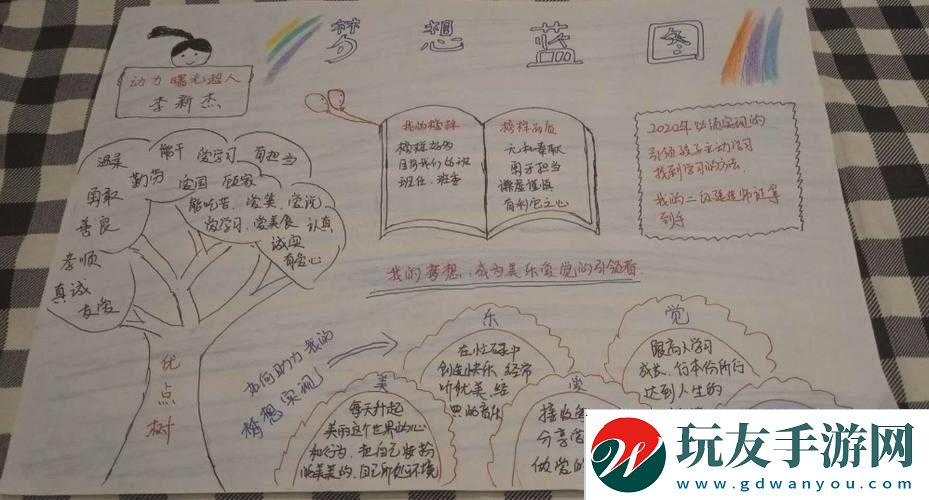 梦想蓝图
动力曙光超人
李新杰
温柔 能干 爱学习 有担当
勇敢 勤劳 爱国 顾家
善良 能吃苦、爱美、爱玩
爱学习、爱美食 认真
孝顺 诚实
有爱心
真诚
友爱
优
点
树
我的榜样
榜样品质
无私奉献
勇于担当
谦虚谨慎
有利他之心
2022年必须实现的
引领孩子主动学习
找到学习的方法.
我的二级建造师证拿
到手
我的梦想,成为美乐爱觉的引领者
如何助力我的
梦想实现
乐
在忙碌中
创造快乐、经常
听优美、经
典的音乐
觉
跟高人学习
成长、行本份所行
达到人生的
美
每天升起
美丽这个世界的心
和行为,把自己妆扮
的美美的,自己所处的环境
爱
接收爱
分享爱
做爱的
玩友手游网
www.gdwanyou.com